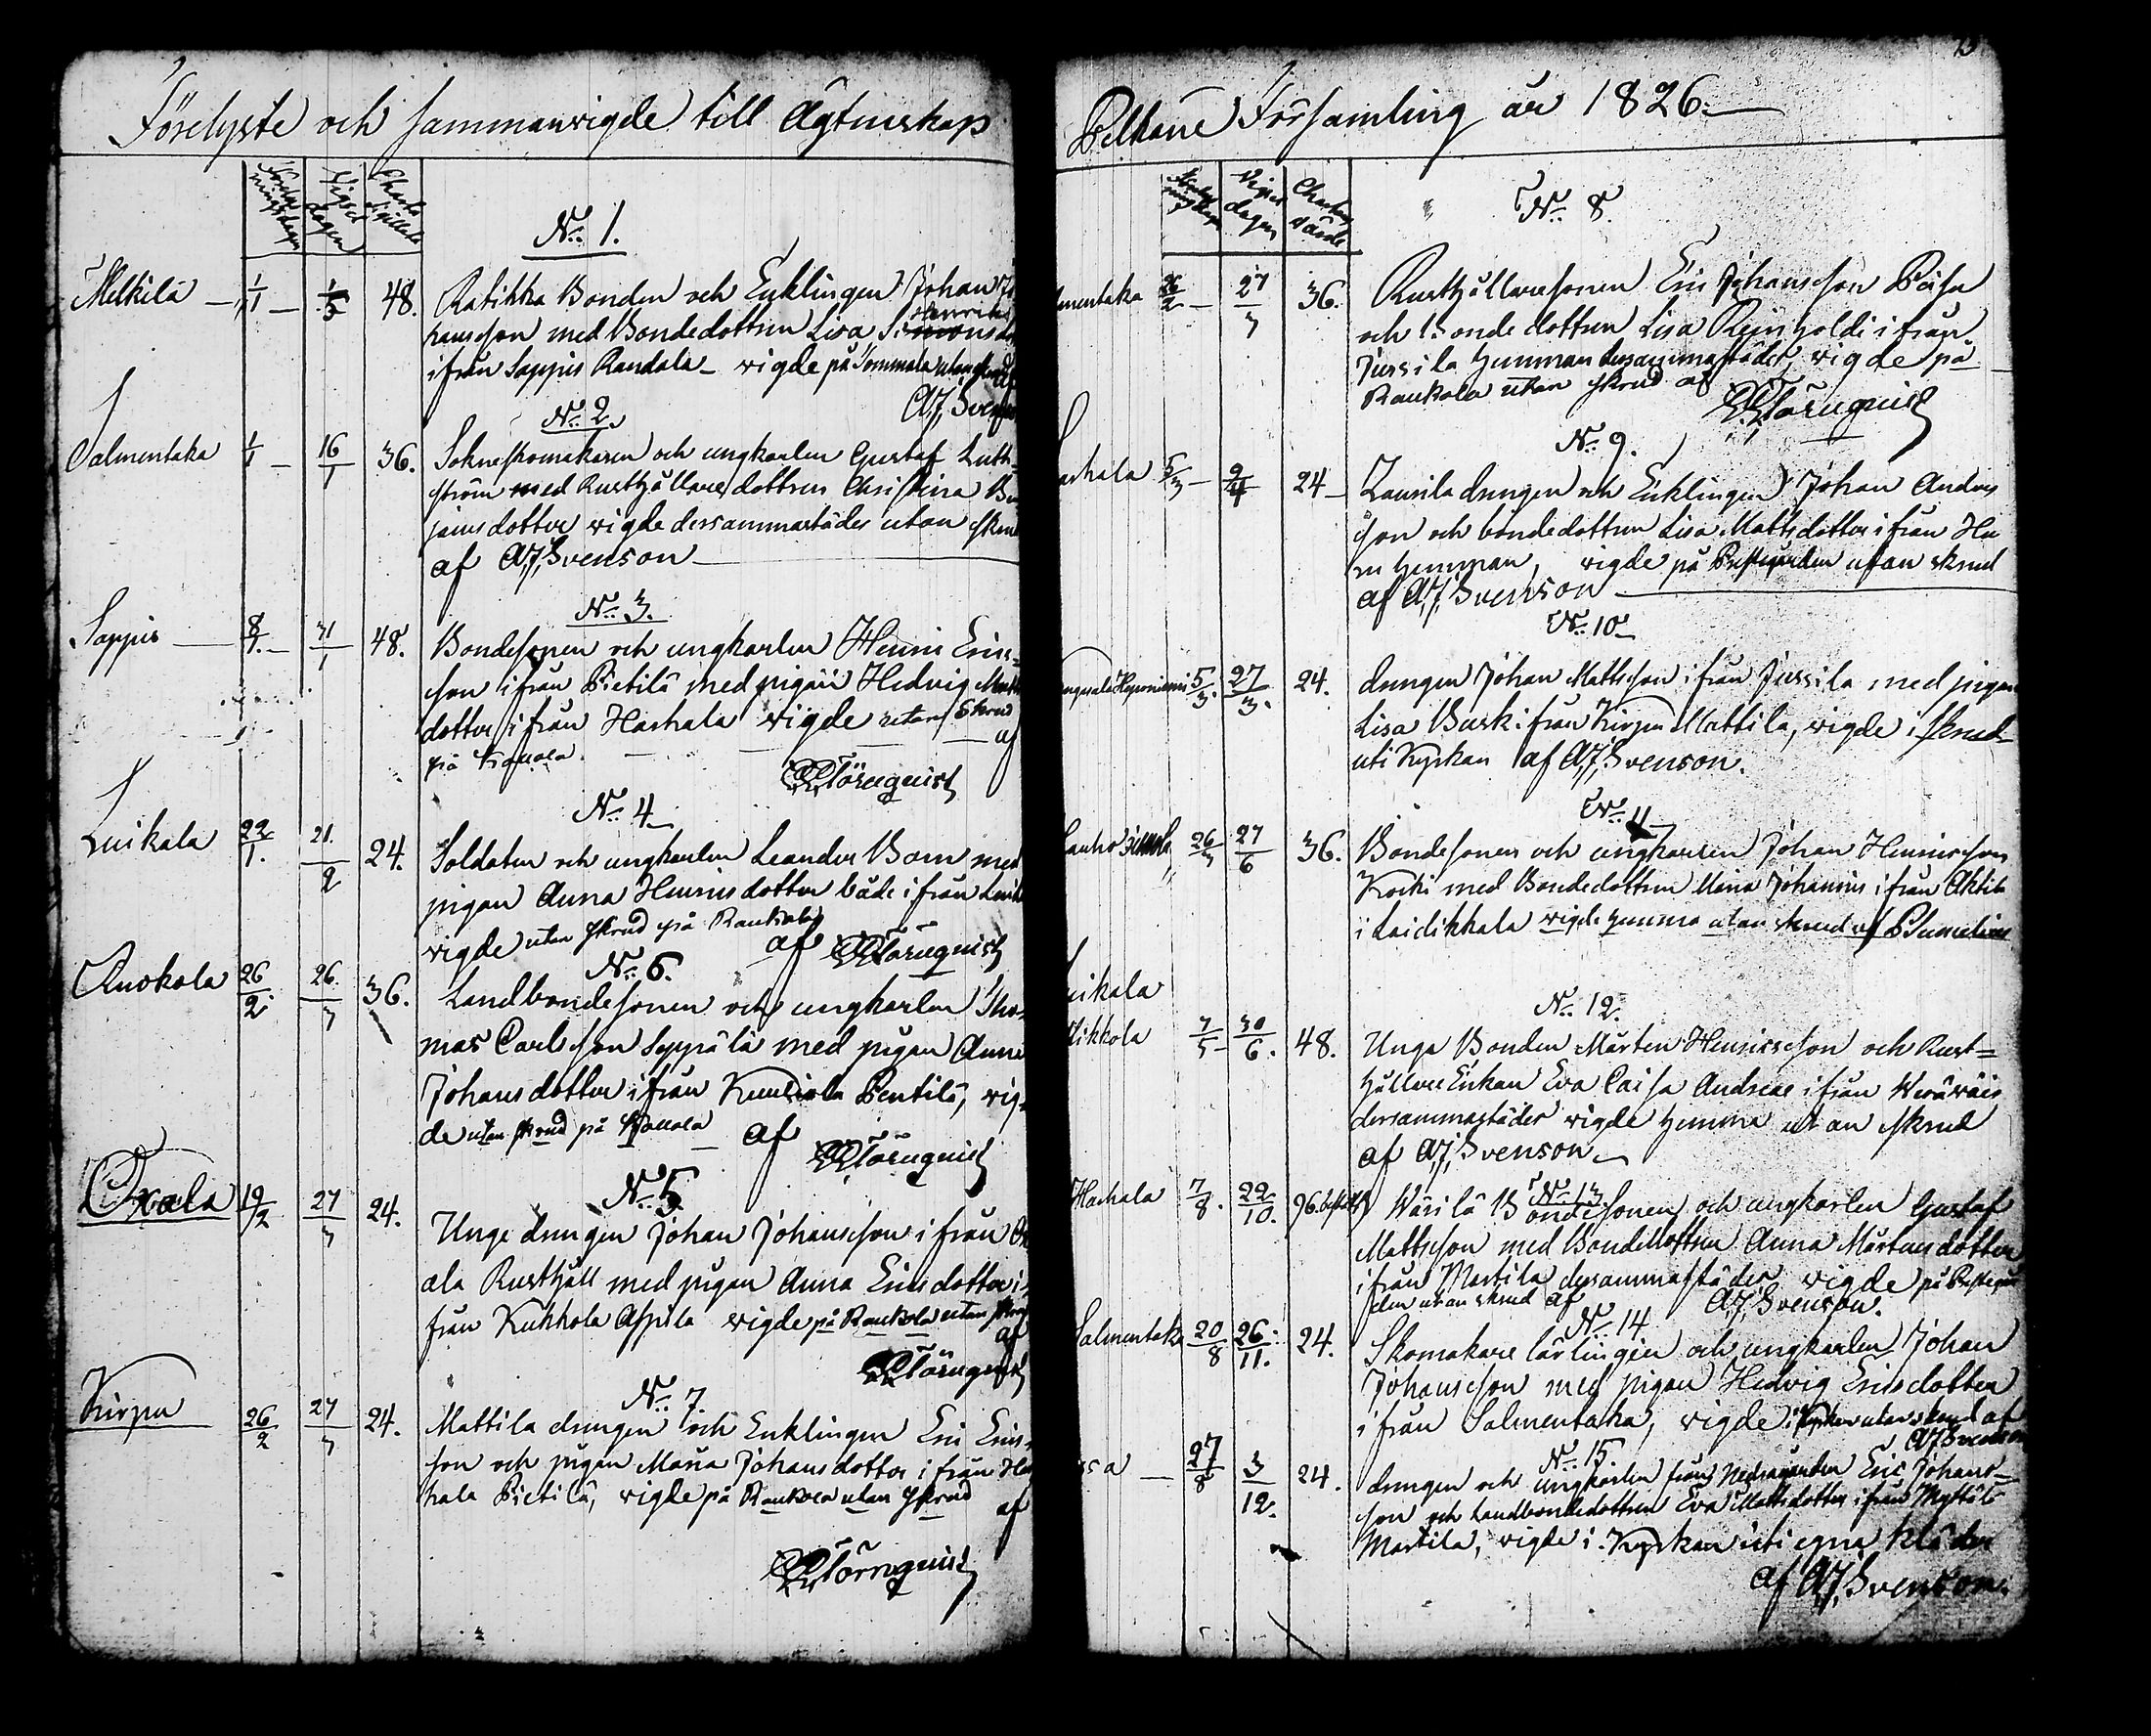 Förelyste och sammanvigde till Ägtenskap
Vigsel
dagen
No. 1.
Melkilä 1/1 48. Ratikka Bonden och Enklingen Johan Jo
hansson med Bondedottren Lisa
Henrics
ifrån Sappis Randala vigde på utan skrud
A.J. Svenson
No. 2.
Salmentaka 1/1 16/1 36. Sokneskomakaren och ungkarlen Gustaf Luth
ström med Rusthållaredottren Christina Ben
jamsdotter vigde dersammastädes utan skrud
af A.J. Svenson
No. 3.
Sappis 8/1. 31/1 48. Bondesonen och ungkarlen Henric Erics
son ifrån Pietilä med pigan Hedvig Matts
dotter ifrån Harhala vigde utan skrud
på af
Törnquist
No. 4
Luikala 22/1. 21./2 24. Soldaten och ungkarlen Leander Born med
pigan Anna Henricsdotter både ifrån Luik
vigde utan skrud på Raukola
af Törnquist
No. 6.
Auokola 26/2. 26./3 36. Landbondesonen och ungkarlen Tho
mas Carlsson Seppälä med pigan Anna
Johansdotter ifrån Kuurila Pentilä, vig
de utan skrud på af
Törnquist
No. 5
Oxala 19/2 27/3 24. Unge drengen Johan Johansson ifrån Ox
ala Rusthåll med pigan Anna Ericsdotter i
från Kukkola Appila vigde på Raukola utan skrud
af
Törnquist
No. 7.
Kirpu 26/2 27/3 24. Mattila drengen och Enklingen Eric Erics
son och pigan Maria Johansdotter ifrån Har
hala Pietilä, vigde på Raukola utan skrud
af
Törnquist
Pelkäne Församling år 1826.
Vigsel
dagen
No. 8.
lmentaka 26/2 27/3 36. Rusthållaresonen Eric Johansson Päisa
och Bondedottren Lisa Reinholdi ifrån
Jussila hemman dersammastädes, vigde på
Raukola utan skrud af
Törnquist
No. 9.
arhala 5/3 2/4 24 Laurila drengen och Enklingen Johan Anders
son och bondedottren Lisa Mattsdotter ifrån Hu
ru hemman, vigde på Prestgården utan skrud
af A.J. Svenson
No. 10
5/3. 27/3. 24. drengen Johan Mattsson ifrån Jussila med pigan
Lisa Busk ifrån Kirpu Mattila, vigde i skrud
uti Kyrkan af A.J. Svenson.
No. 11
26/3 27/6 36. Bondesonen och ungkarlen Johan Henricsson
Koski med Bondedottren Maria Johansdr ifrån Aktila
i Laidikkala vigde hemma utan skrud af
uikala
No. 12.
Mikkola 7/5 30/6. 48. Unga Bonden Mårten Henricsson och Rust=
hållare Enkan Eva Caisa Andreae ifrån
dersammastädes vigde hemma utan skrud
af A.J. Svenson
No. 13
Harhala 7/8. 22/10. 96. Wärilä Bondesonen och ungkarlen Gustaf
Mattsson med Bondedottren Anna Mårtensdotter
ifrån Martila dersammastädes vigde på Prestgår
den utan skrud af A.J. Svenson.
No. 14
Salmentaka 20/8 26./11. 24. Skomakare lärlingen och ungkarlen Johan
Johansson med pigan Hedvig Ericsdotter
ifrån Salmentaka, vigde i Kyrkan utan skrud af
A.J. Svenson
No. 15.
27/8 3/12. 24. drengen och ungkarlen från Nedragården Eric Johans=
son och Landbondedottren Eva Mattsdotter ifrån Myttälä
Martila, vigde i Kyrkan uti egna kläder
af A.J. Svenson.